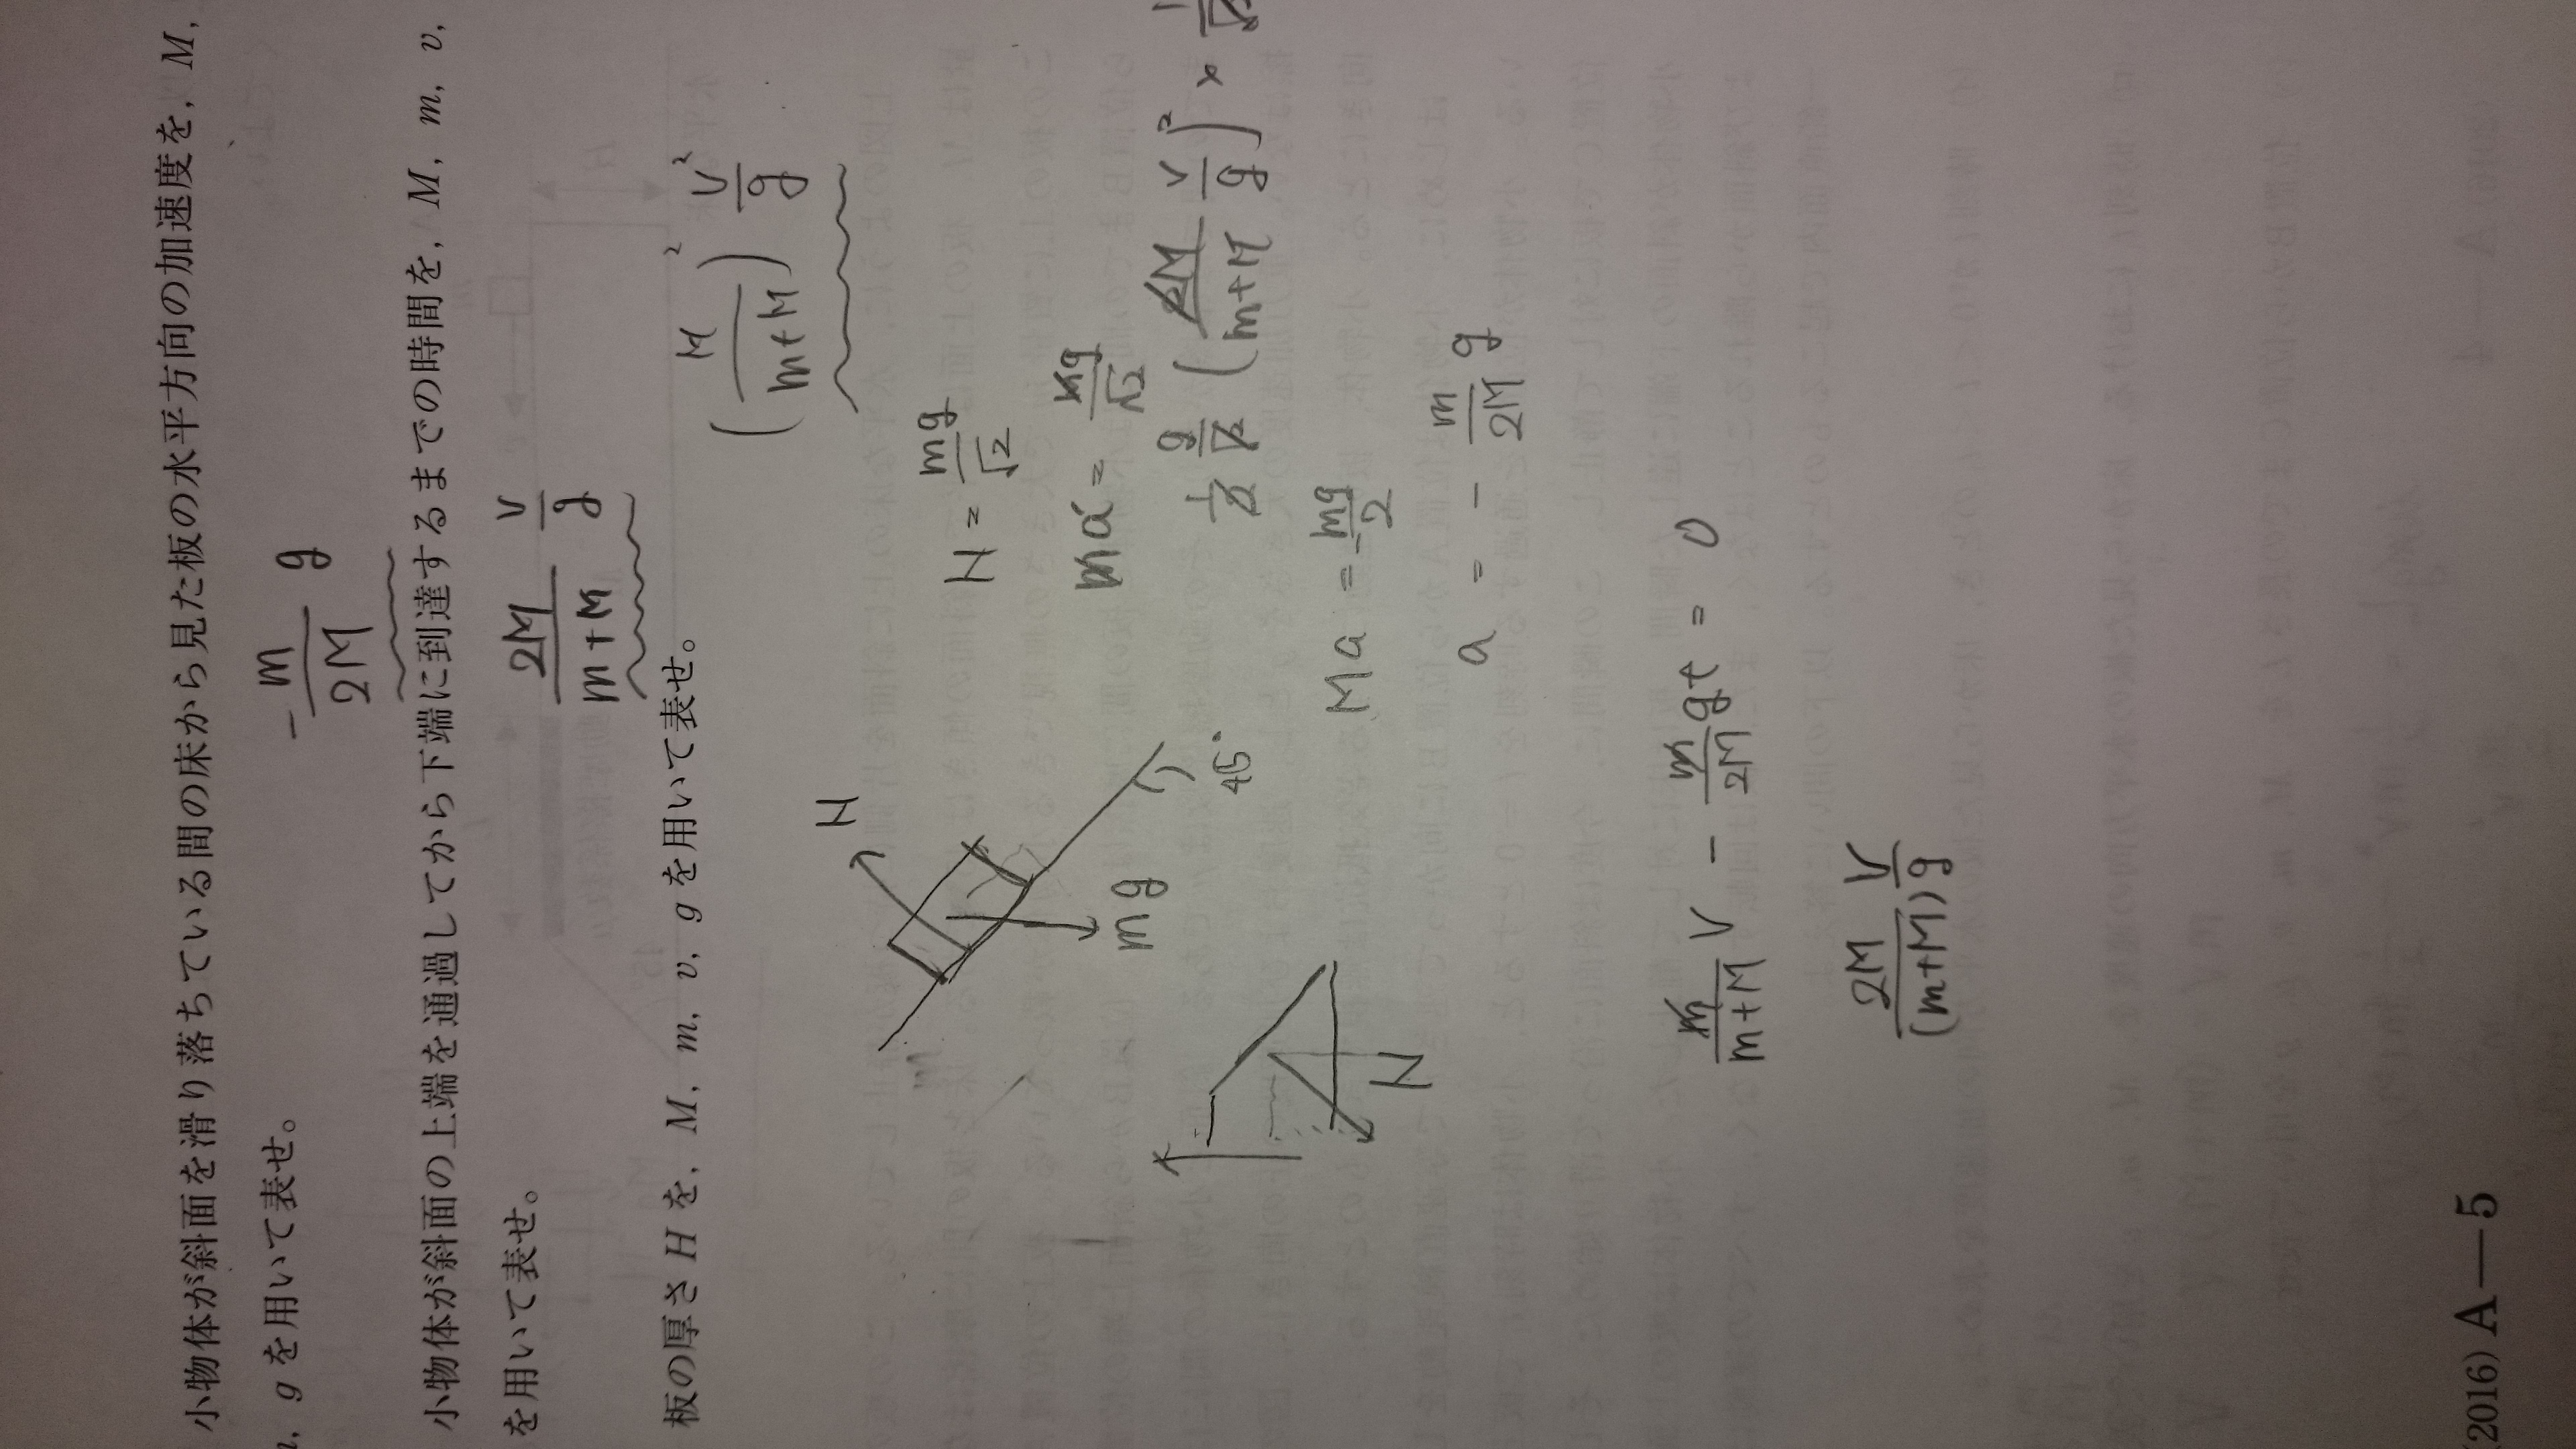 小物体が斜面を滑り落ちている間の床から見た板の水平方向の加速度を, M,
g を用いて表せ。
- m/2M g
小物体が斜面の上端を通過してから下端に到達するまでの時間を, M, m, v,
を用いて表せ。
2M/m+M v/g
板の厚さ H を, M, m, v, g を用いて表せ。
(M/m+M)² v²/g
N
mg
45°
N = mg/√2
ma = mg/√2
1/2 g/√2 (2M/m+M v/g)² ×
N
Ma = - mg/2
a = - m/2M g
m/m+M v - m/2M gt = 0
2M/(m+M) v/g
2016) A—5